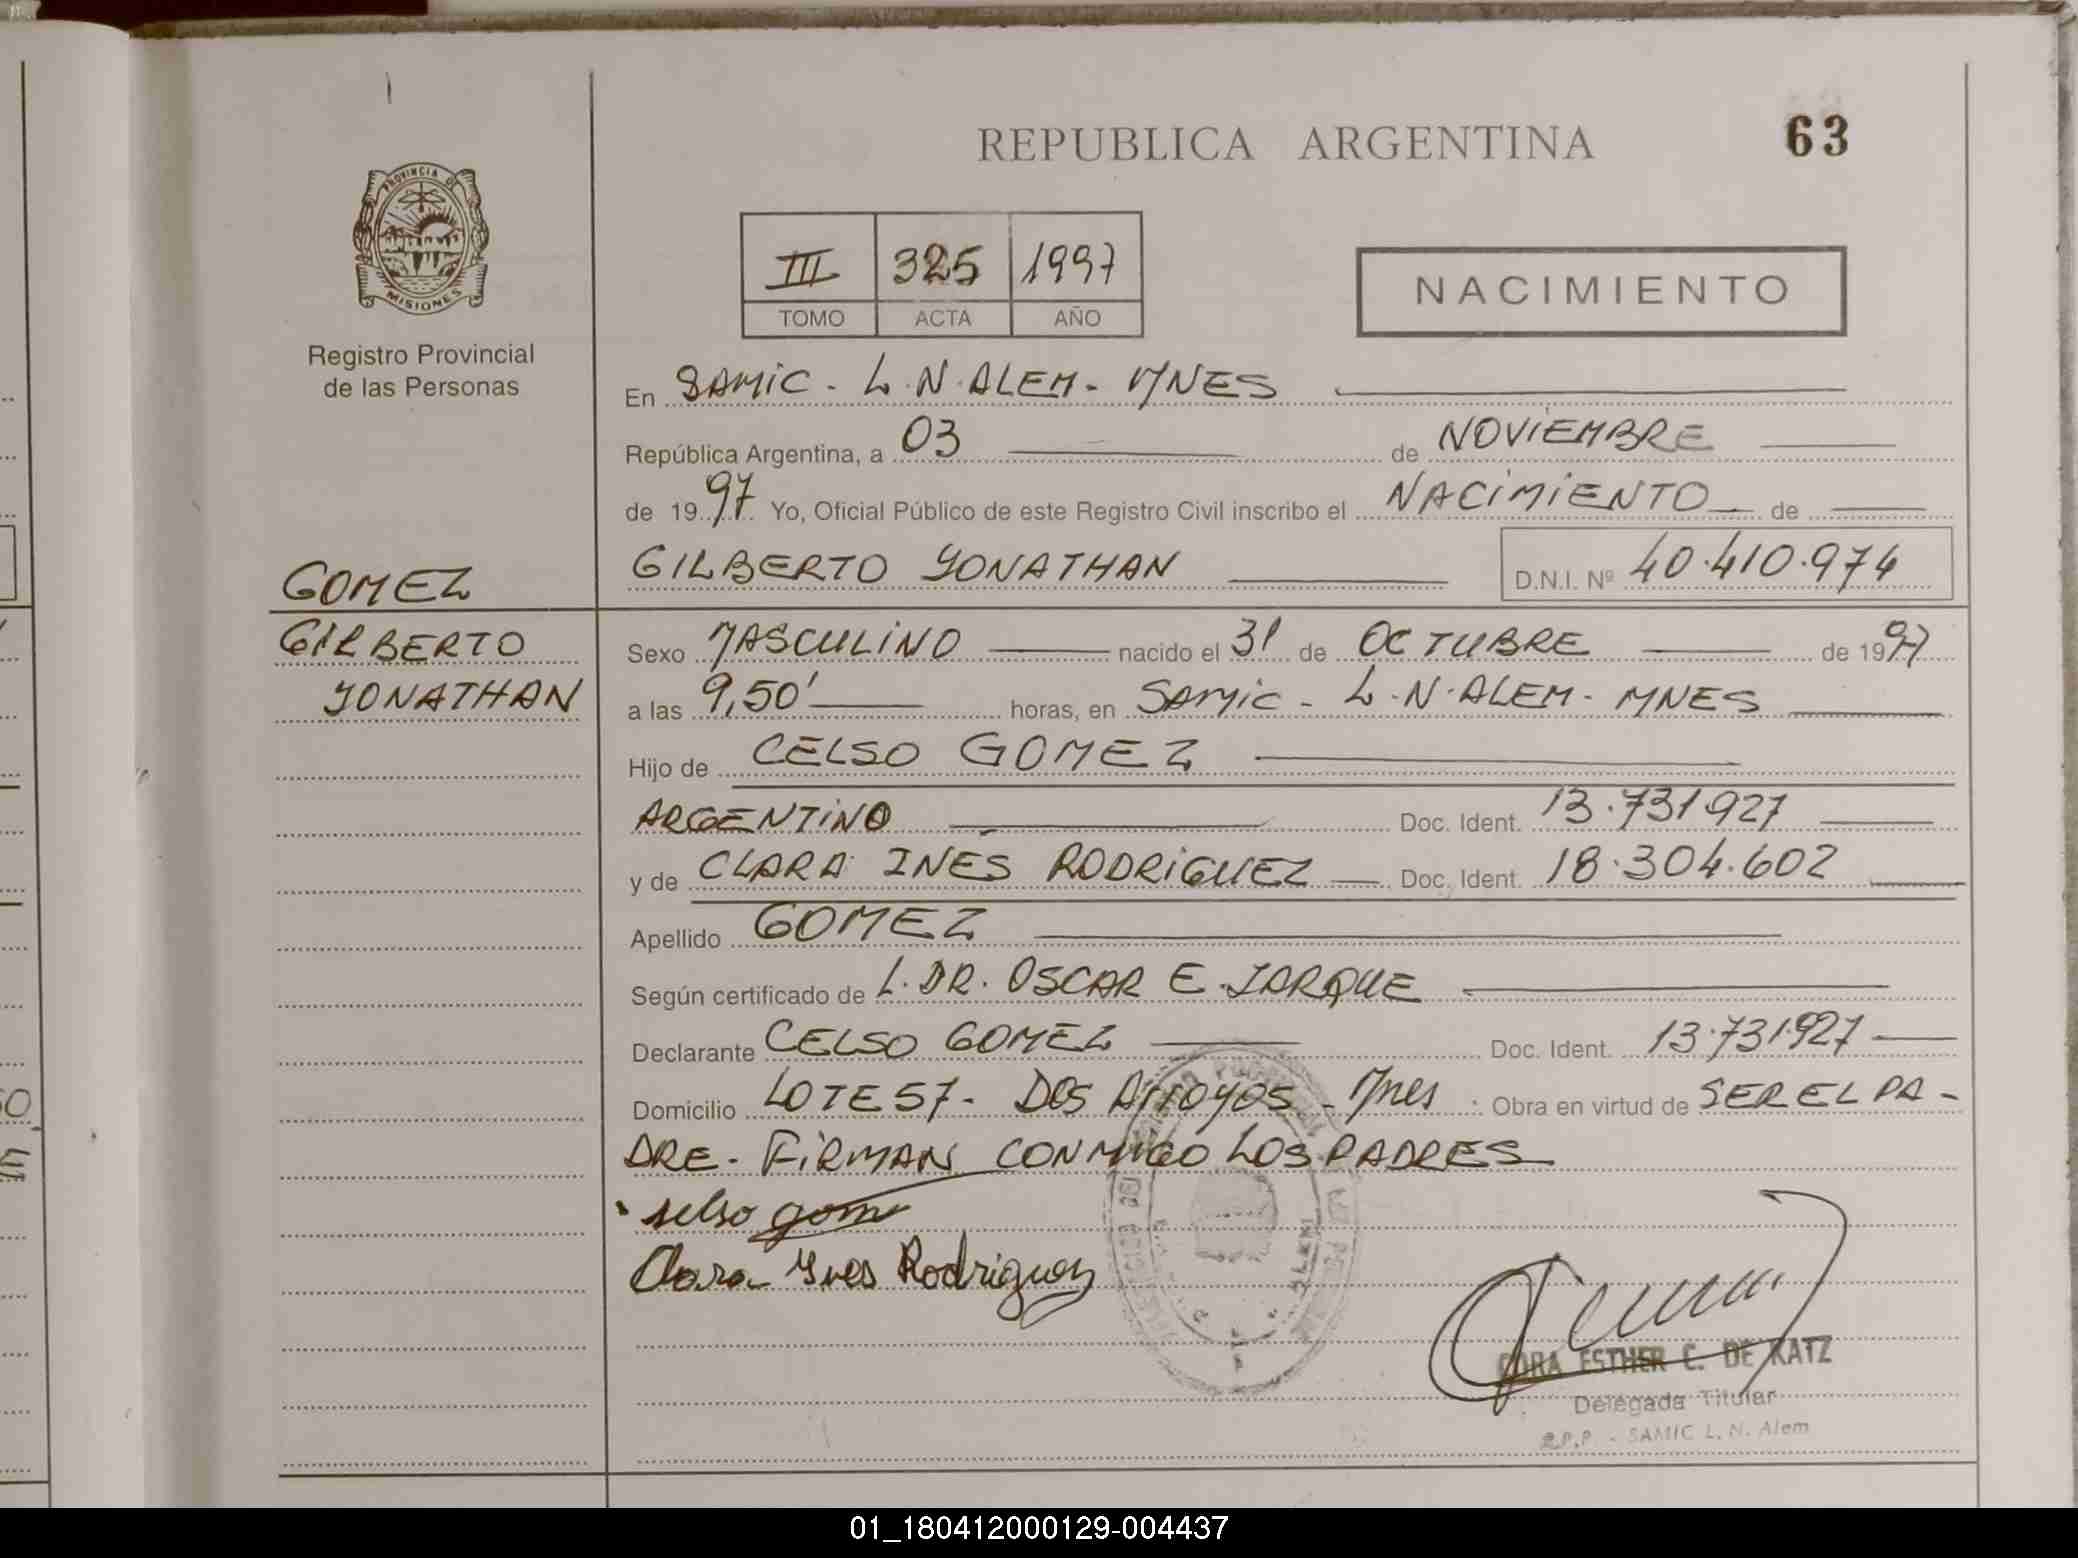 REPUBLICA ARGENTINA
63
PROVINCIA DE
MISIONES
Registro Provincial
de las Personas
III 325 1997
TOMO ACTA AÑO
NACIMIENTO
En SAMIC - L.N.ALEM - MNES
República Argentina, a 03 de NOVIEMBRE
de 1997 Yo, Oficial Público de este Registro Civil inscribo el NACIMIENTO de
GILBERTO YONATHAN D.N.I. Nº 40.410.974
GOMEZ
GILBERTO
YONATHAN
Sexo MASCULINO nacido el 31 de OCTUBRE de 1997
a las 9,50' horas, en SAMIC - L.N.ALEM - MNES
Hijo de CELSO GOMEZ
ARGENTINO Doc. Ident. 13.731.927
y de CLARA INÉS RODRIGUEZ Doc. Ident. 18.304.602
Apellido GOMEZ
Según certificado de L. DR. OSCAR E. JARQUE
Declarante CELSO GOMEZ Doc. Ident. 13.731.927
Domicilio LOTE 57 - DOS Arroyos - Mnes Obra en virtud de SER EL PA-
DRE. FIRMAN CONMIGO LOS PADRES
selso gom
Clara Ynes Rodriguez
CORA ESTHER C. DE KATZ
Delegada Titular
R.P.P - SAMIC L. N. Alem
01_180412000129-004437